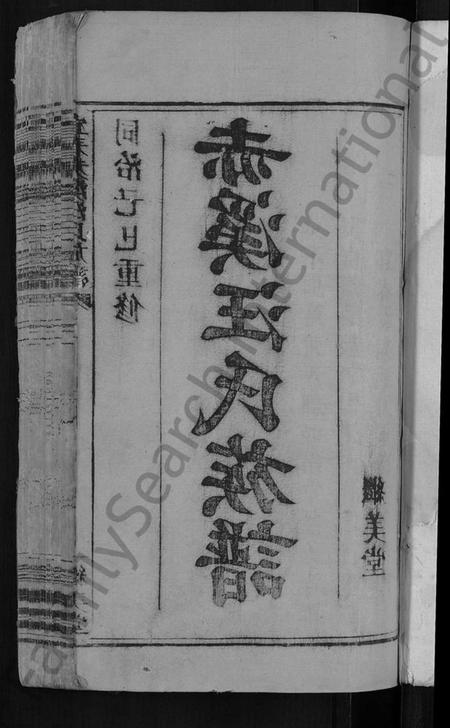 同治己巳重修
赤溪汪氏族譜
繼美堂
FamilySearch International